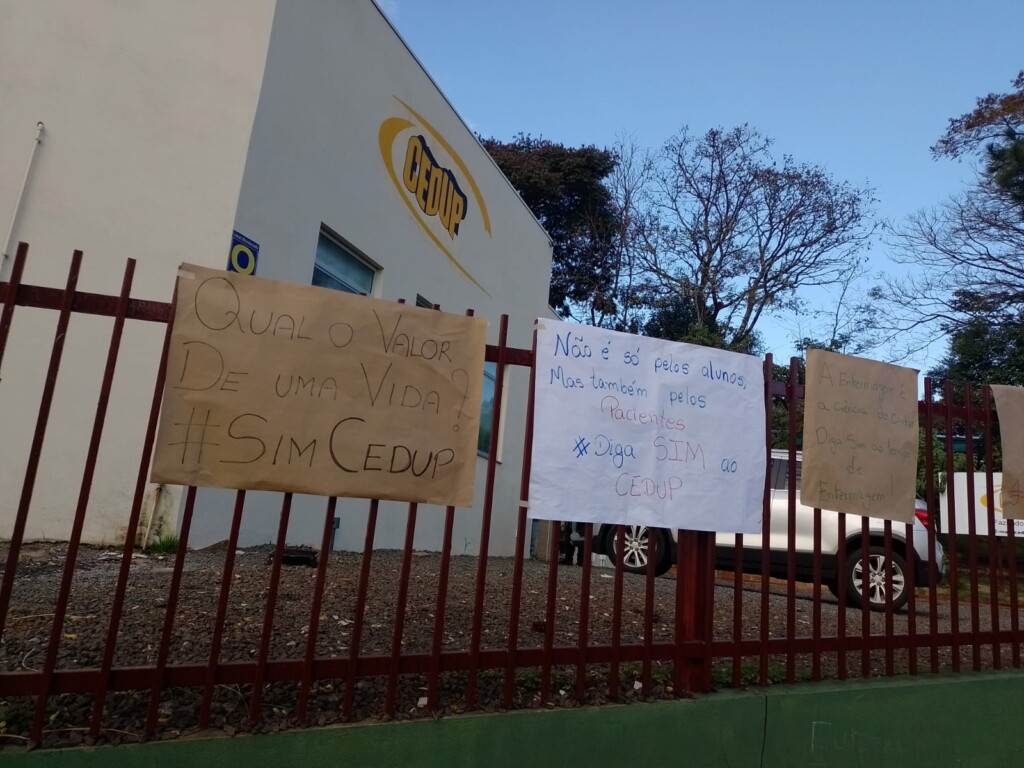 CEDUP
QUAL O VALOR
DE UMA VIDA?
#SIMCEDUP
Não é só pelos alunos,
Mas também pelos
Pacientes
#Diga SIM ao
CEDUP
A Enfermagem é
a ciência do cuidar
Diga Sim ao
de
Enfermagem!